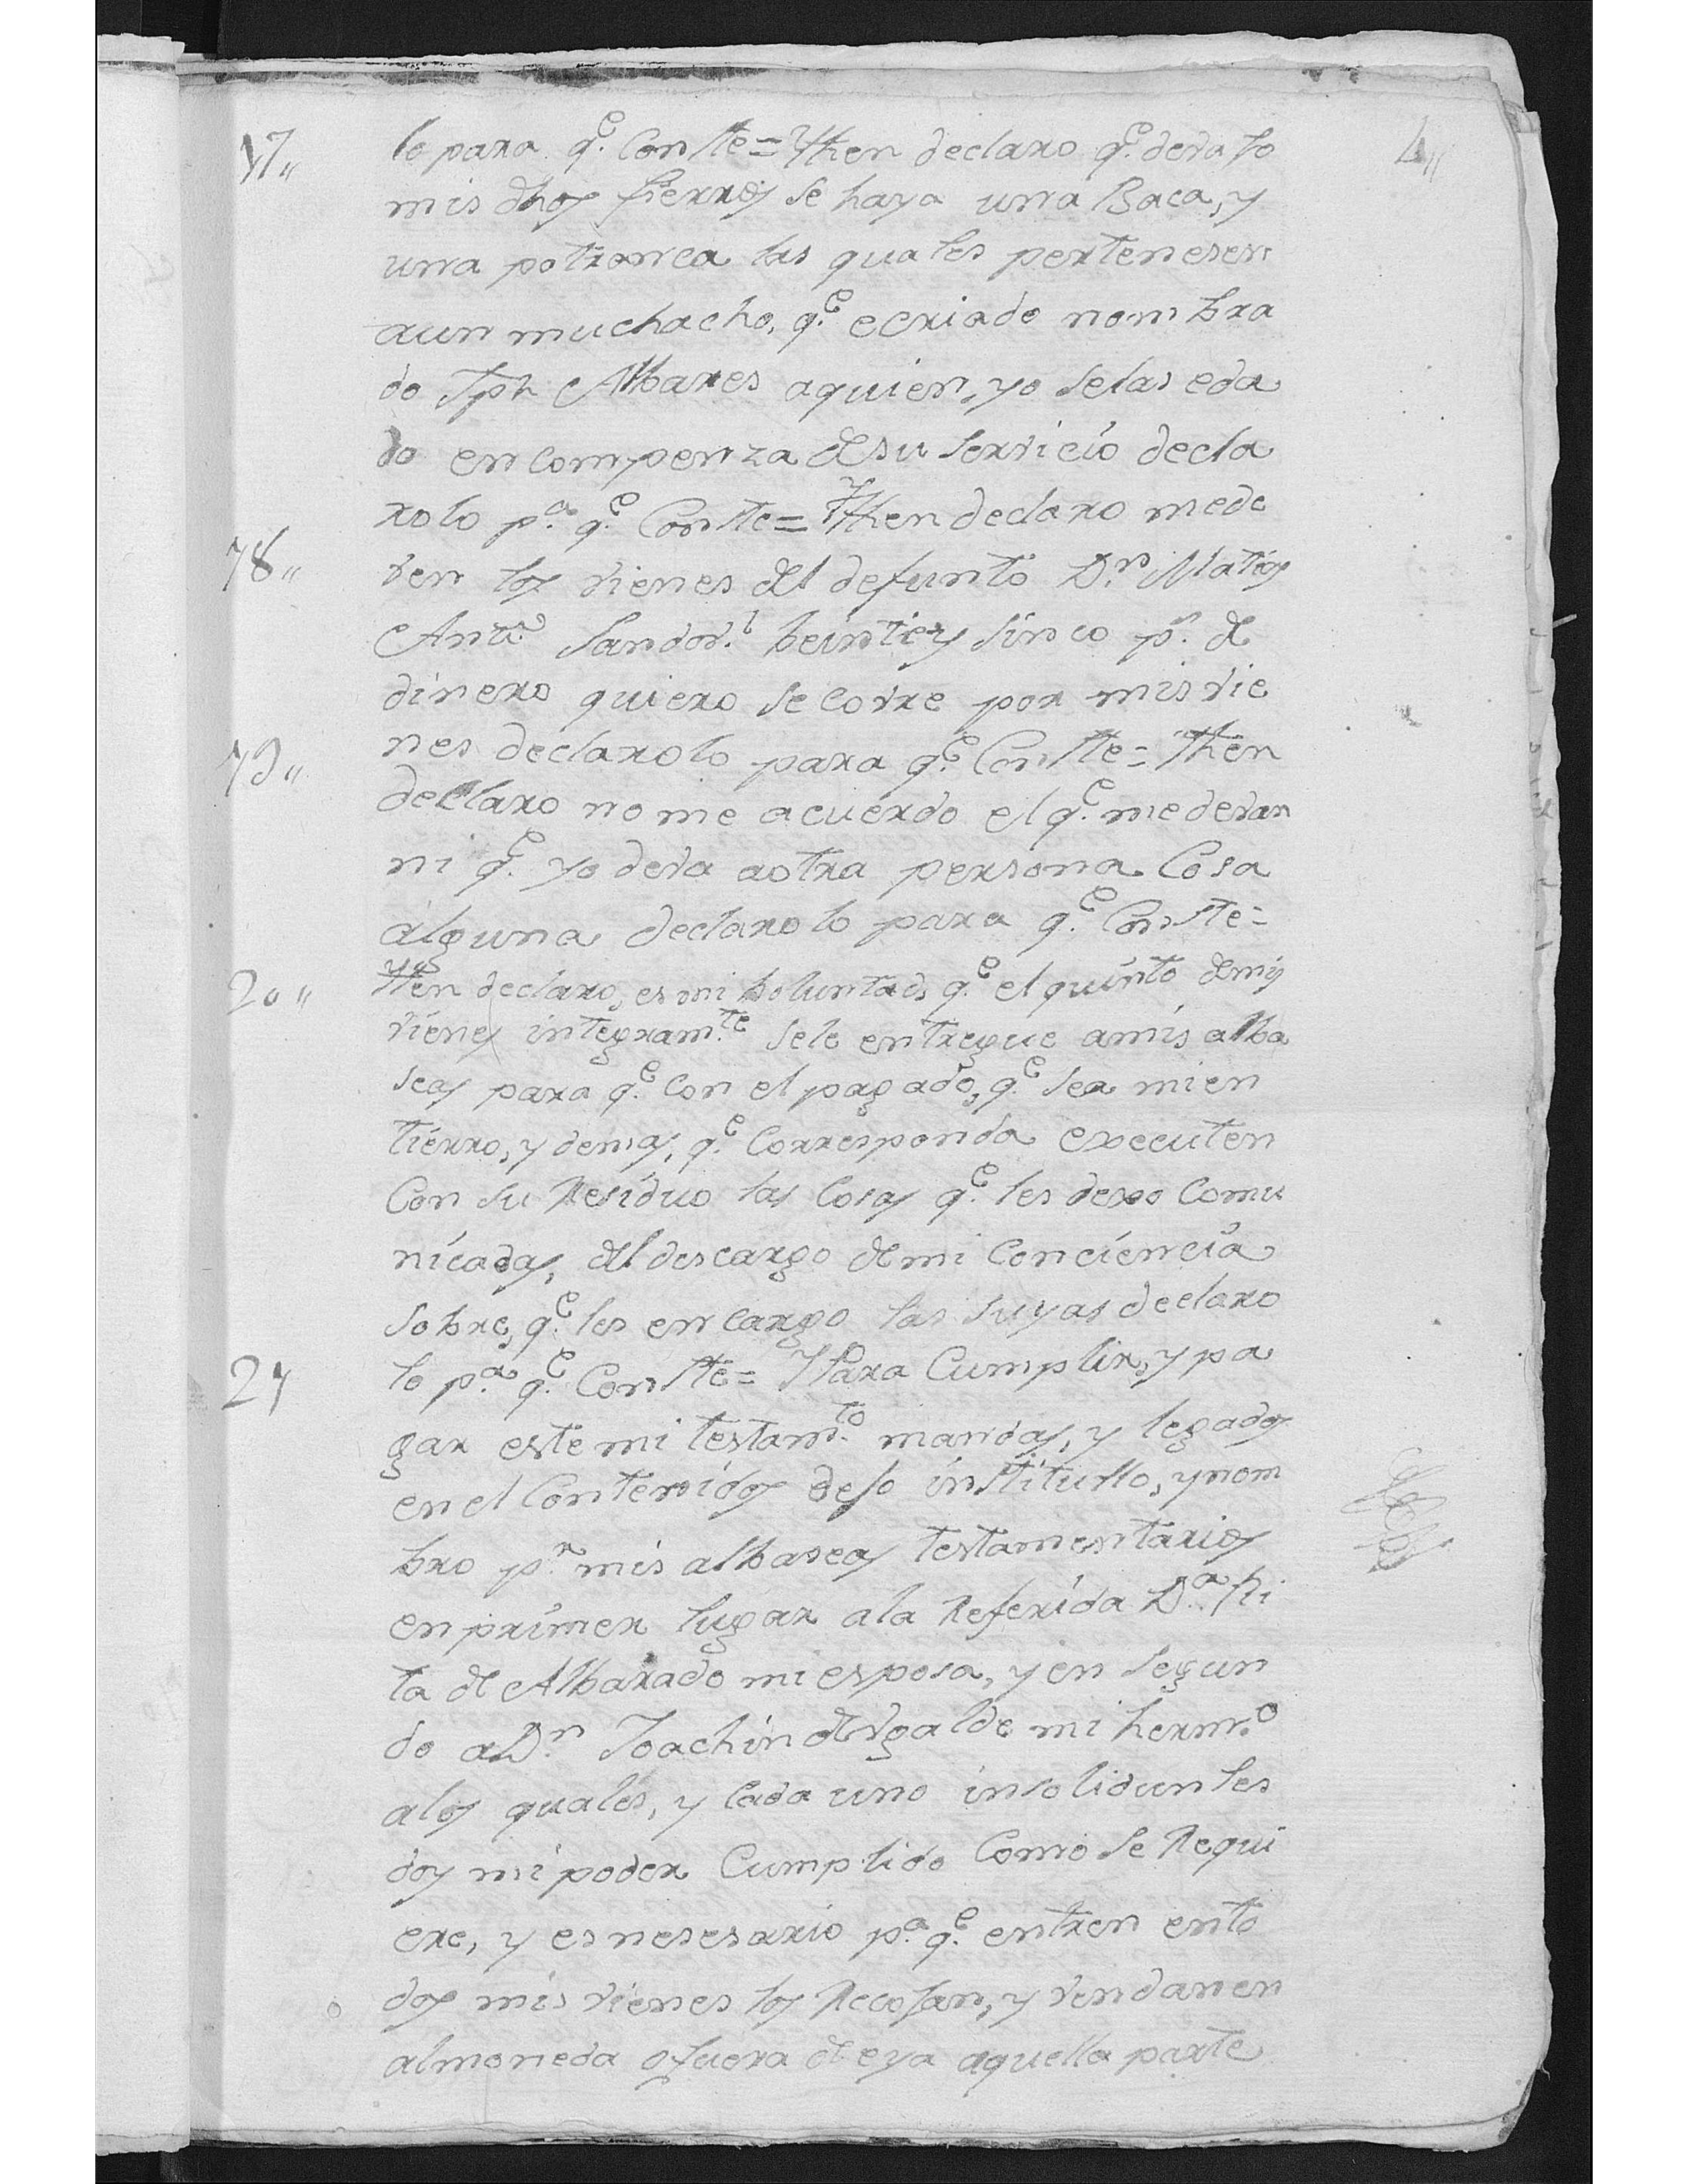 4,,
17,, lo para q.e Conste = Yten declaro q.e devajo
mis dhos fierros se haya una Baca, y
una potranca las quales pertenesen
aun muchacho, q.e e criado nombra
do Jph Albares aquien, yo selas eda
do en compenza de su servicio decla
rolo p.a q.e Conste = Yten declaro mede
18,, ven los vienes del defunto D.n Matias
Ant.o Sandov.l beintey sinco p.s de
dinero quiero se covre por mis vie
19,, nes declarolo para q.e Conste = Yten
declaro no me acuerdo el q.e me devan
ni q.e yo deva aotra persona Cosa
alguna declarolo para q.e Conste =
20,, Yten declaro, es mi boluntad, q.e el quinto de mis
vienes integram.te sele entregue amis alba
seas para q.e con el pagado, q.e sea mi en
tierro, y demas, q.e Corresponda executen
Con su Residuo las Cosas q.e les dexo Comu
nicadas, del descargo de mi Conciencia
sobre, q.e les encargo las suyas declaro
21 lo p.a q.e Conste = Y Para Cumplir, y pa
gar este mi testam.to mandas, y legados
en el Contenidos dejo institullo, y nom
bro p.r mis albaseas testamentarios
en primer lugar ala Referida D.a Ri
ta de Albarado mi esposa, y en segun
do a D.n Joachin de Ugalde mi herm.o
alos quales, y Cada uno insolidun les
doy mi poder Cumplido Como se Requi
ere, y es nesesario p.a q.e entren ento
dos mis vienes los Recojan, y vendan en
almoneda o fuera de eya aquella parte